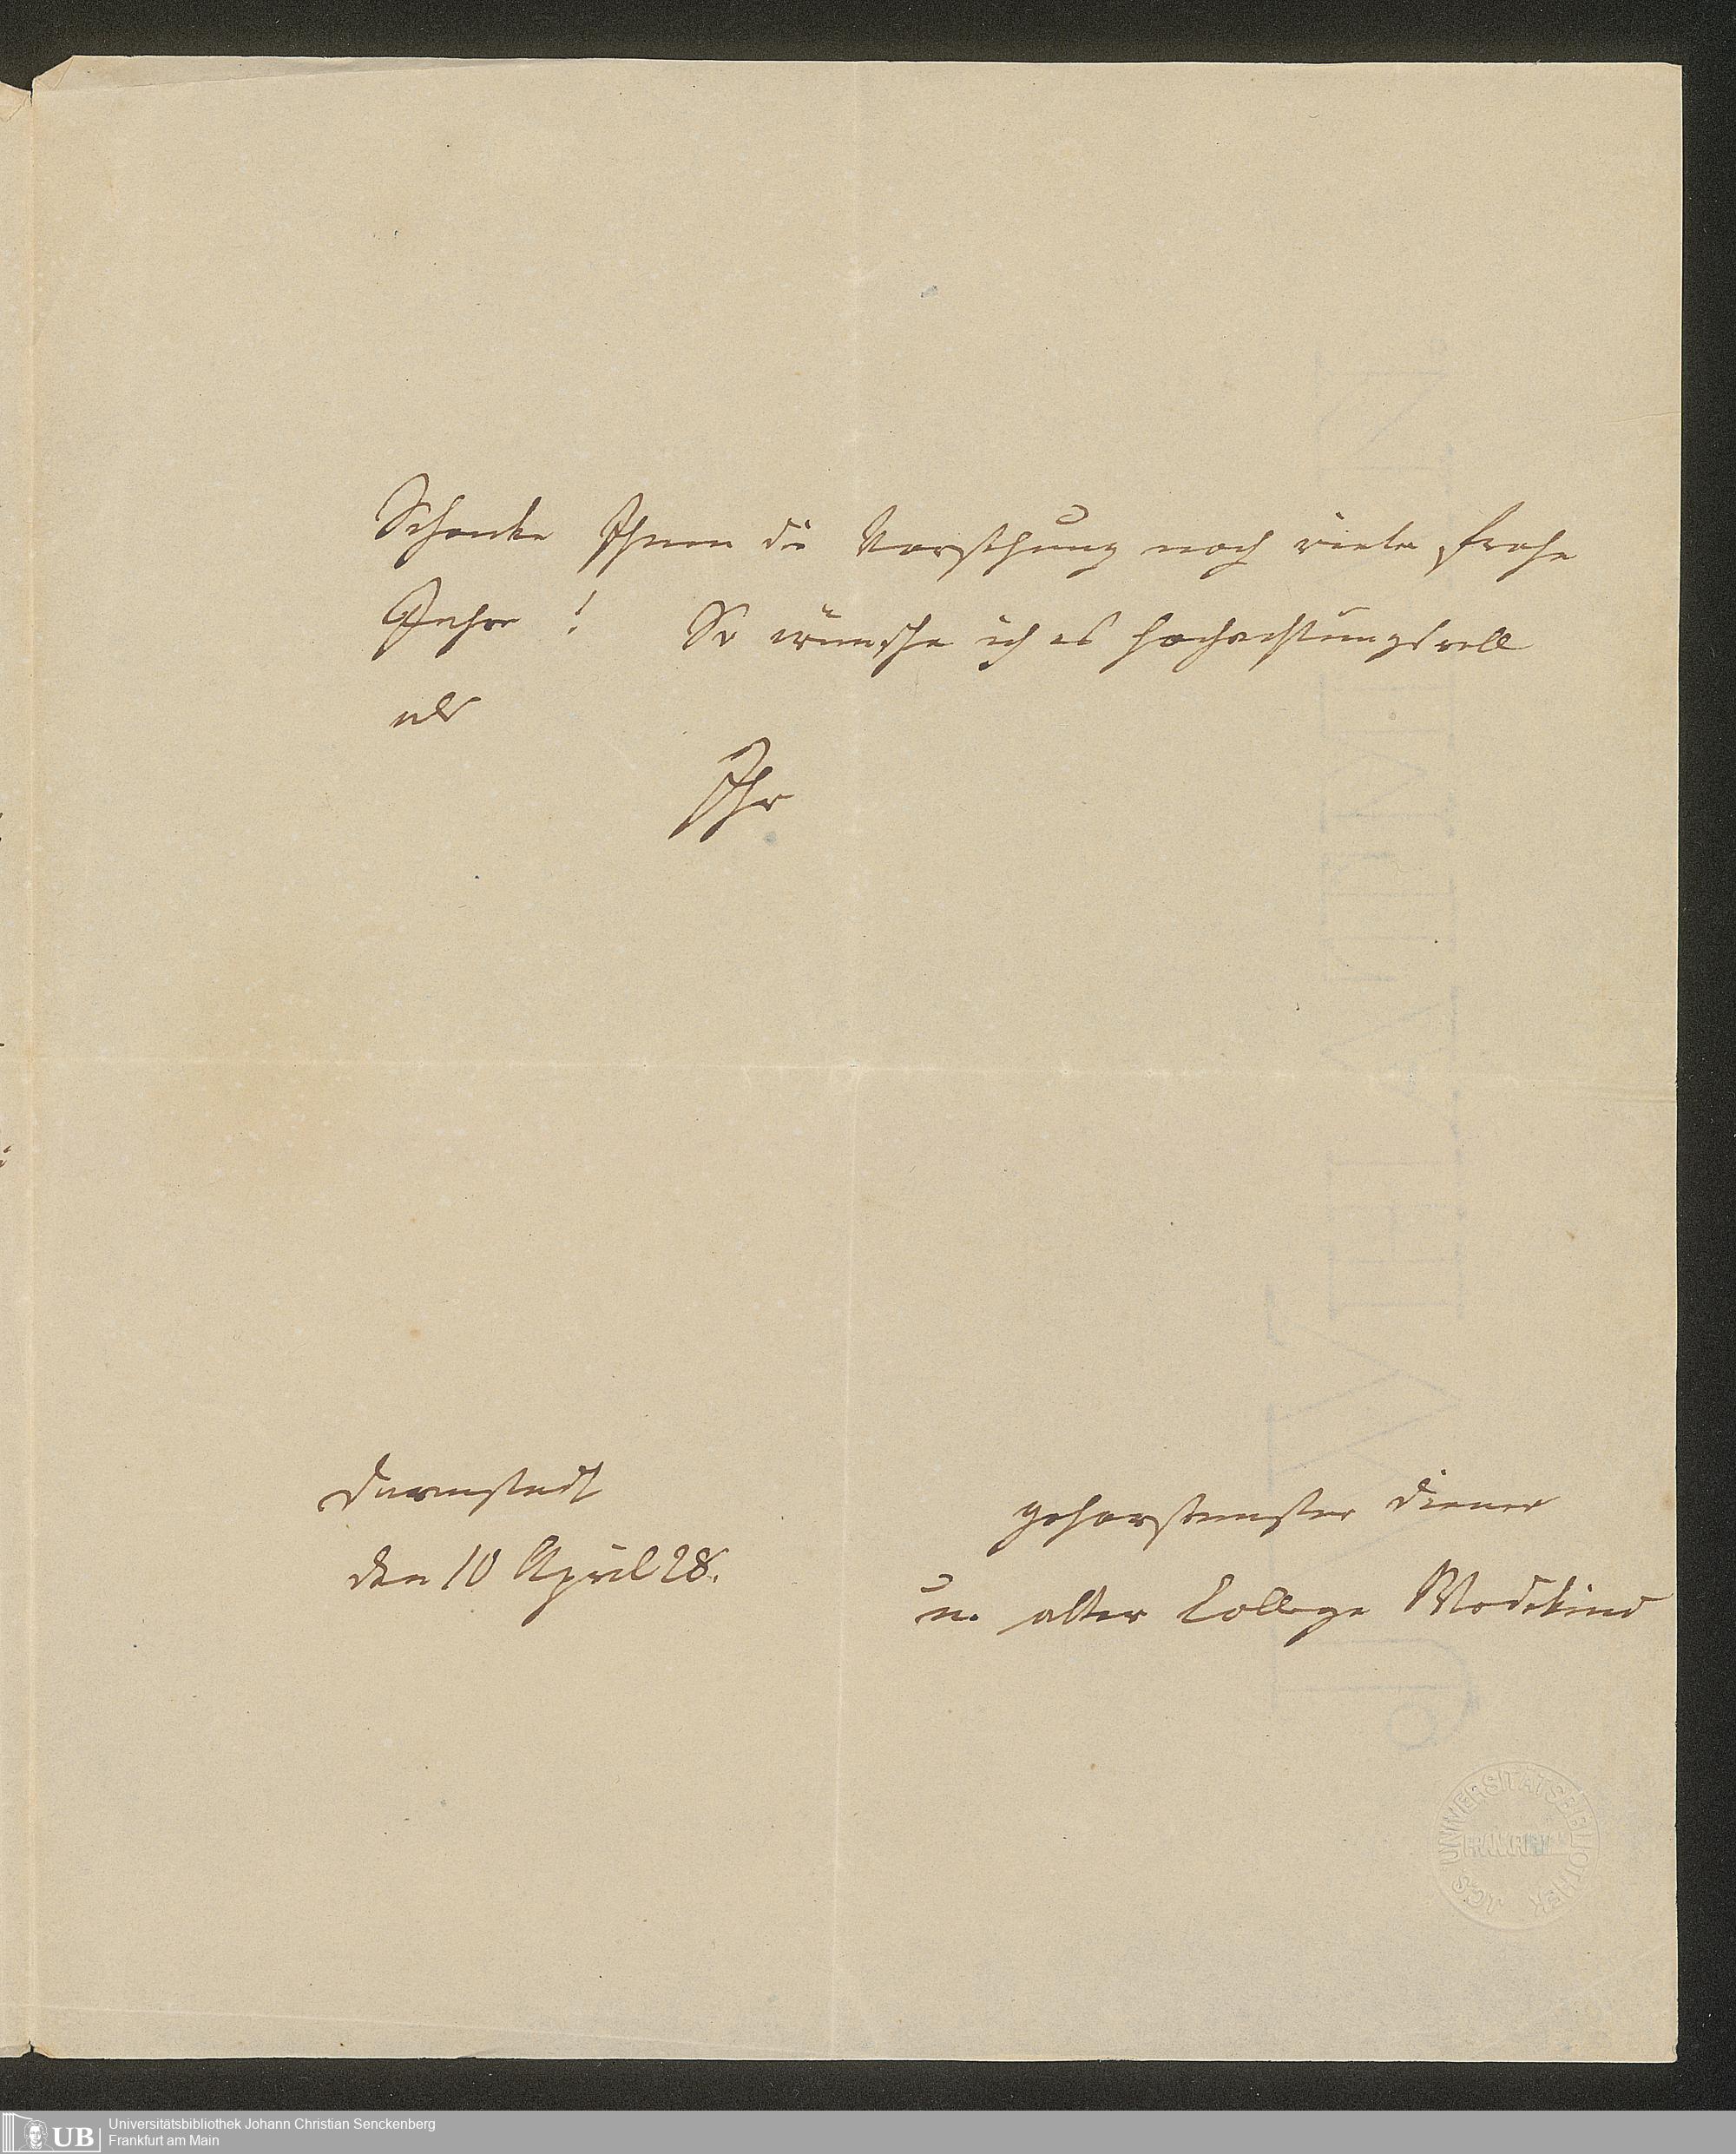 Schenke Ihnen die Vorsehung noch viele frohe
Jahre! So wünsche ich es hochachtungsvoll
als
Ihr
Darmstadt
den 10 April 28.
gehorsamster Diener
u. alter College Wedekind
J WHATMAN
JCS UNIVERSITÄTSBIBLIOTHEK
FRANKFURT
UB
Universitätsbibliothek Johann Christian Senckenberg
Frankfurt am Main